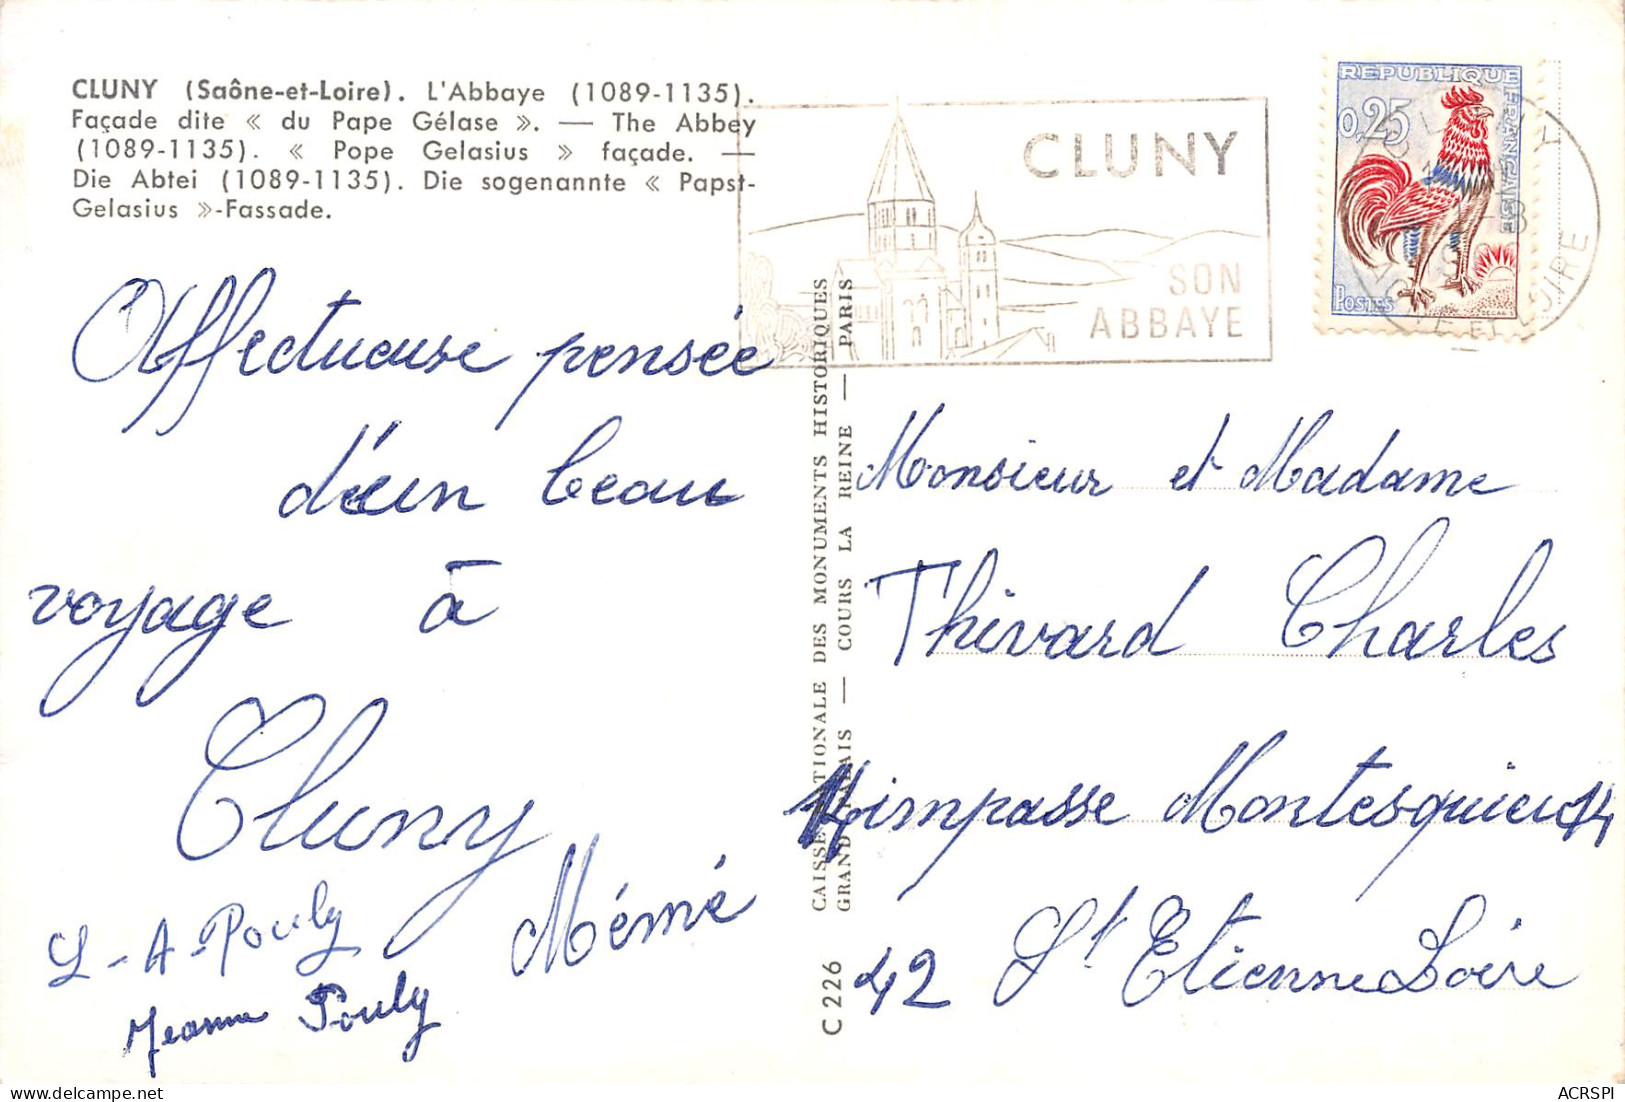 CLUNY (Saône-et-Loire). L'Abbaye (1089-1135).
Façade dite « du Pape Gélase ». — The Abbey
(1089-1135). « Pope Gelasius » façade. —
Die Abtei (1089-1135). Die sogenannte « Papst-
Gelasius »-Fassade.
CLUNY
SON
ABBAYE
REPUBLIQUE
FRANÇAISE
0,25
POSTES
DECARIS
ET LOIRE
Affectueuse pensée
d'un beau
voyage à
Cluny
Mémé
L-A-Pouly
Jeanne Pouly
CAISSE NATIONALE DES MONUMENTS HISTORIQUES
GRAND PALAIS — COURS LA REINE — PARIS
C 226
Monsieur et Madame
Thivard Charles
14 impasse Montesquieu 14
42 St Etienne Loire
ACRSPI